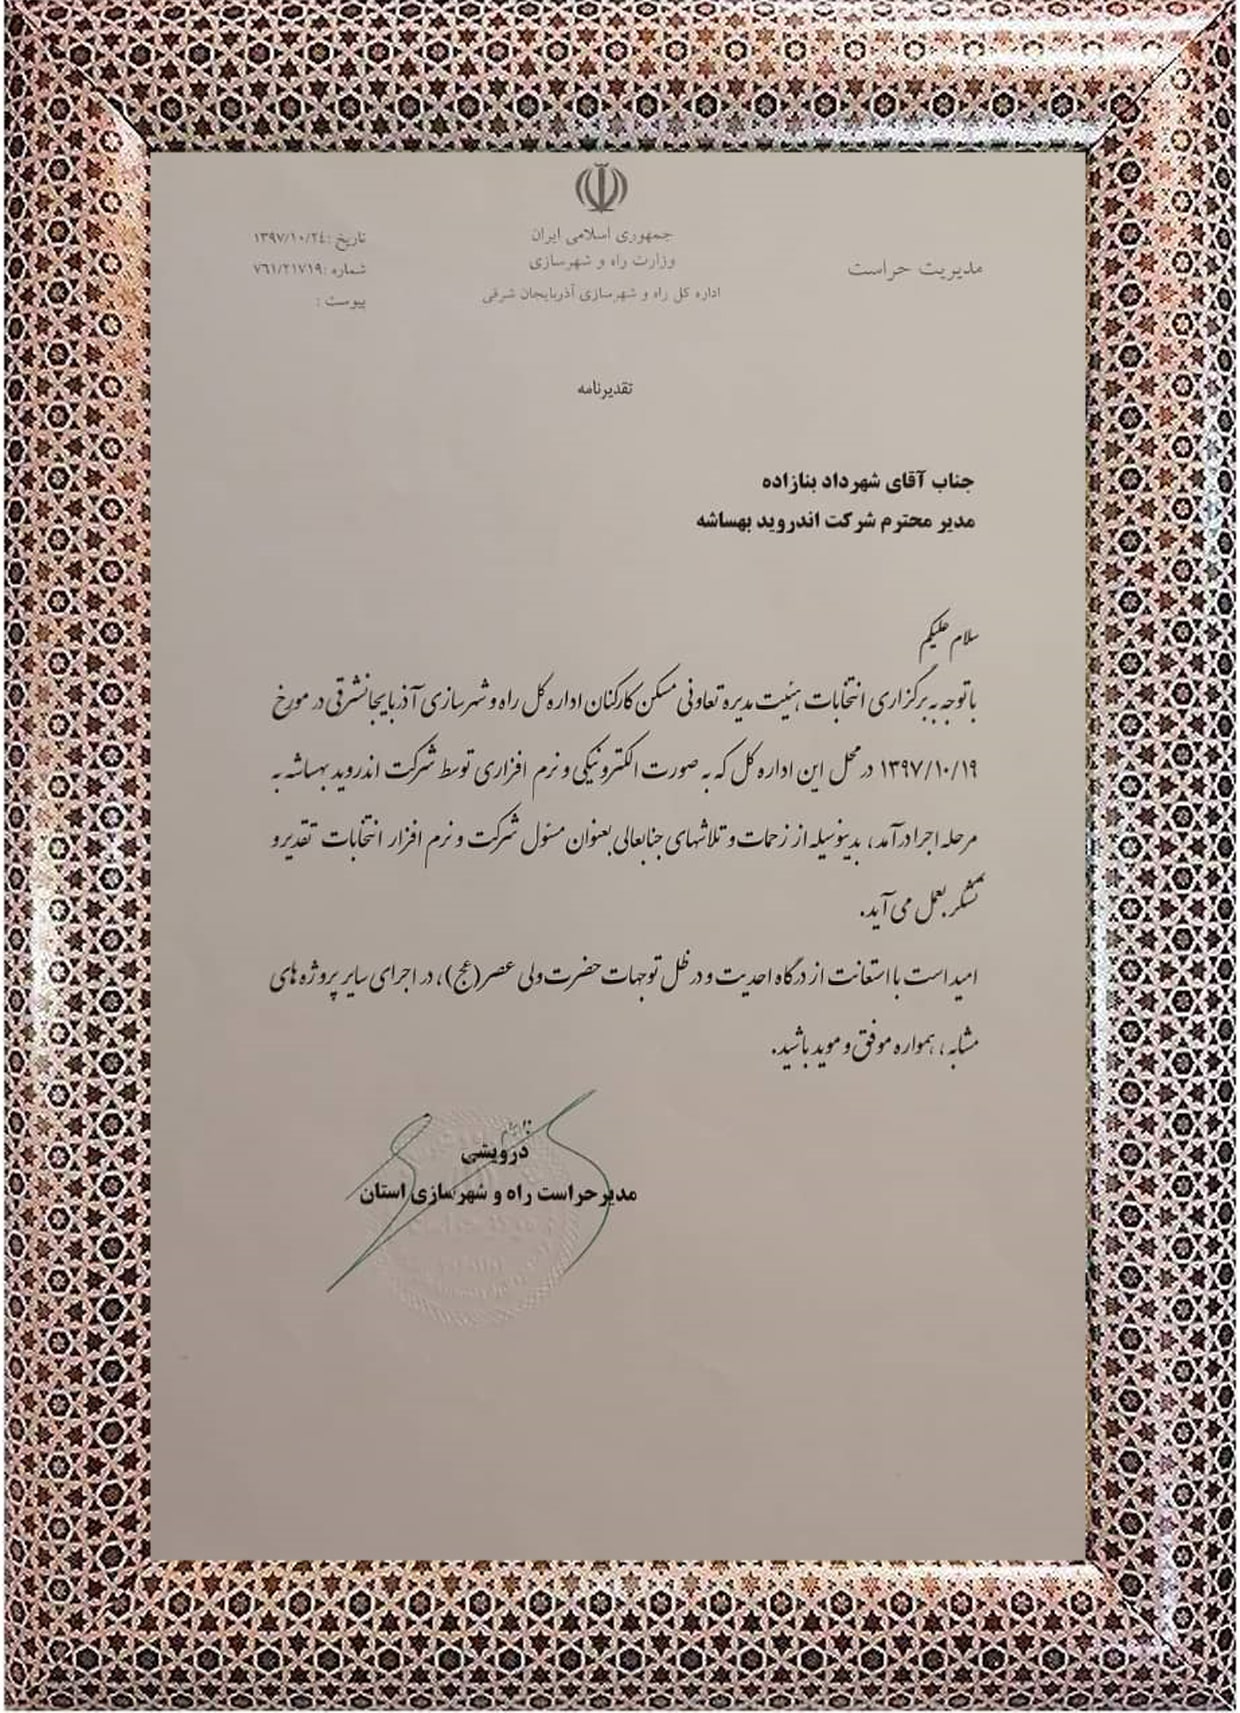 جمهوری اسلامی ایران
وزارت راه و شهرسازی
اداره کل راه و شهرسازی آذربایجان شرقی
مدیریت حراست
تاریخ :۱۳۹۷/۱۰/۲٤
شماره :۷٦۱/۲۱۷۱۹
پیوست :
تقدیرنامه
جناب آقای شهرداد بنازاده
مدیر محترم شرکت اندروید بهساشه
سلام علیکم
باتوجه به برگزاری انتخابات هیئت مدیره تعاونی مسکن کارکنان اداره کل راه و شهرسازی آذربایجانشرقی در مورخ
۱۳۹۷/۱۰/۱۹ در محل این اداره کل که به صورت الکترونیکی و نرم افزاری توسط شرکت اندروید بهساشه به
مرحله اجرا درآمد، بدینوسیله از زحمات و تلاشهای جنابعالی بعنوان مسئول شرکت و نرم افزار انتخابات تقدیر و
تشکر بعمل می آید.
امید است با استعانت از درگاه احدیت و در ظل توجهات حضرت ولی عصر(عج)، در اجرای سایر پروژه های
مشابه ، همواره موفق و موید باشید.
درویشی
مدیرحراست راه و شهرسازی استان